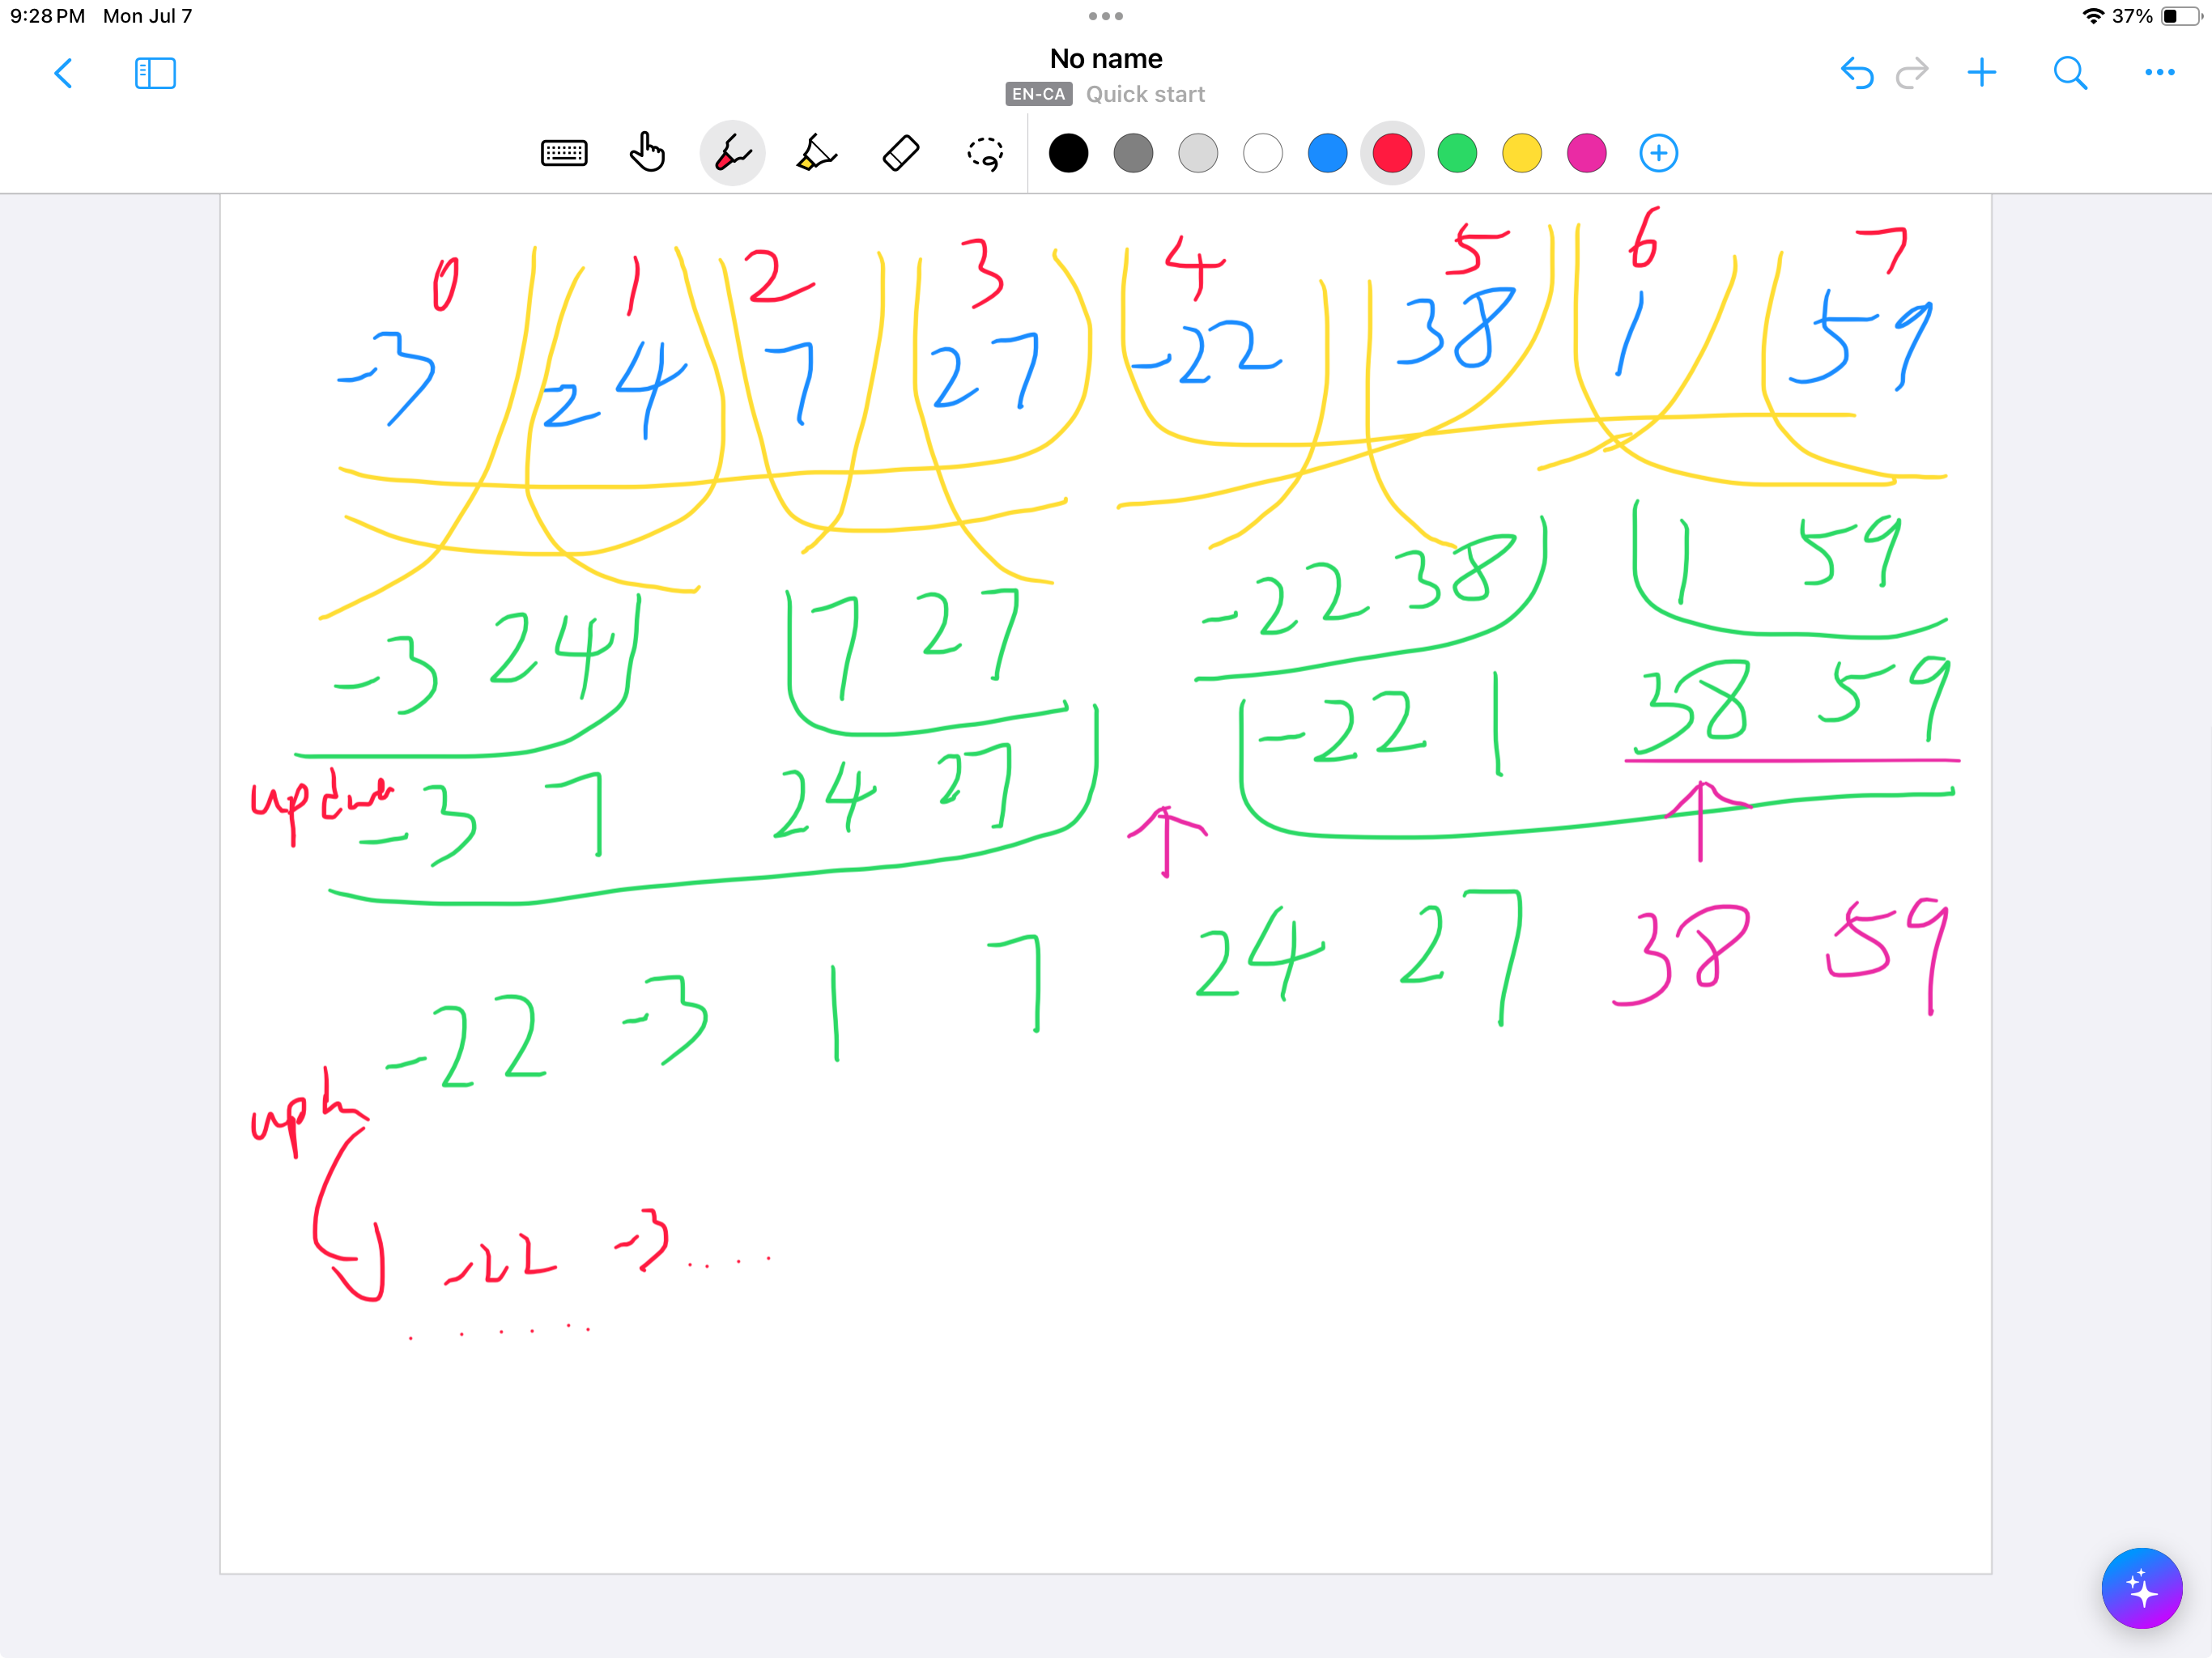 9:28 PM Mon Jul 7
37%
No name
EN-CA Quick start
0 1 2 3 4 5 6 7
-3 24 7 27 -22 38 1 59
-3 24 7 27 -22 38 1 59
-3 7 24 27 -22 1 38 59
-22 -3 1 7 24 27 38 59
-22 -3 ....
......